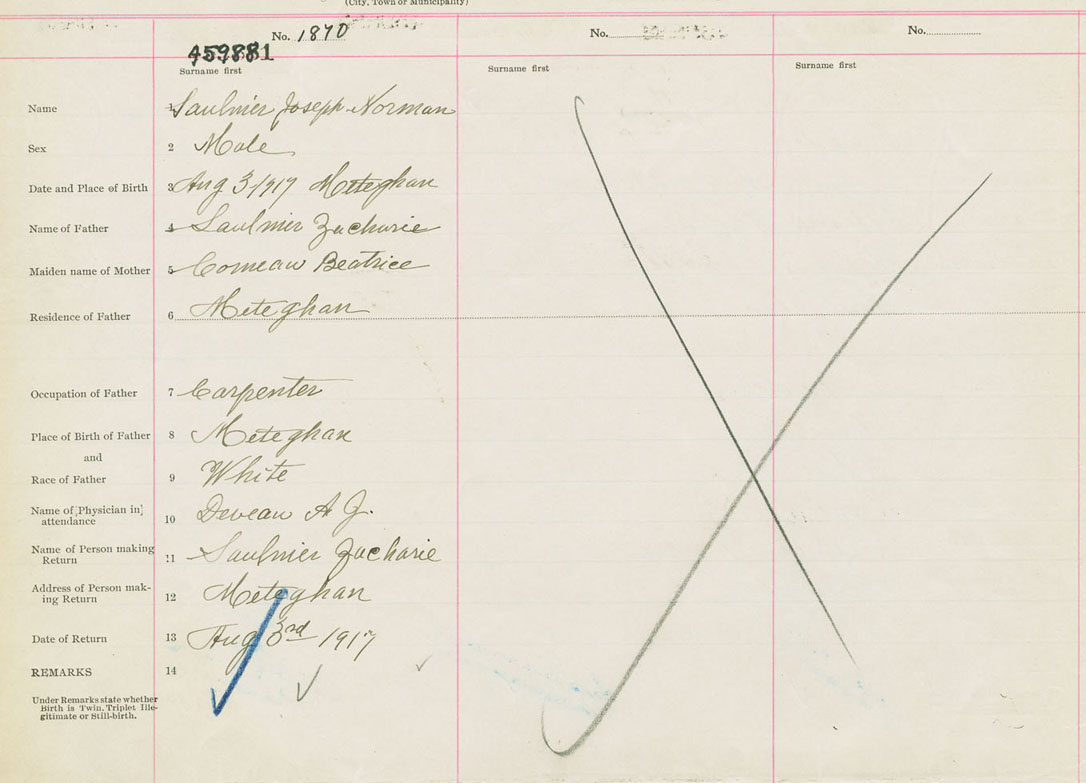 (City, Town or Municipality)
No. 1870
No.
No.
459881
Surname first
Surname first
Surname first
Name 1 Saulnier Joseph Norman
Sex 2 Male
Date and Place of Birth 3 Aug 3/1917 Meteghan
Name of Father 4 Saulnier Zacharie
Maiden name of Mother 5 Comeau Beatrice
Residence of Father 6 Meteghan
Occupation of Father 7 Carpenter
Place of Birth of Father 8 Meteghan
and
Race of Father 9 White
Name of Physician in
attendance 10 Deveau A J.
Name of Person making
Return 11 Saulnier Zacharie
Address of Person mak-
ing Return 12 Meteghan
Date of Return 13 Aug 3rd 1917
REMARKS 14
Under Remarks state whether
Birth is Twin, Triplet Ille-
gitimate or Still-birth.